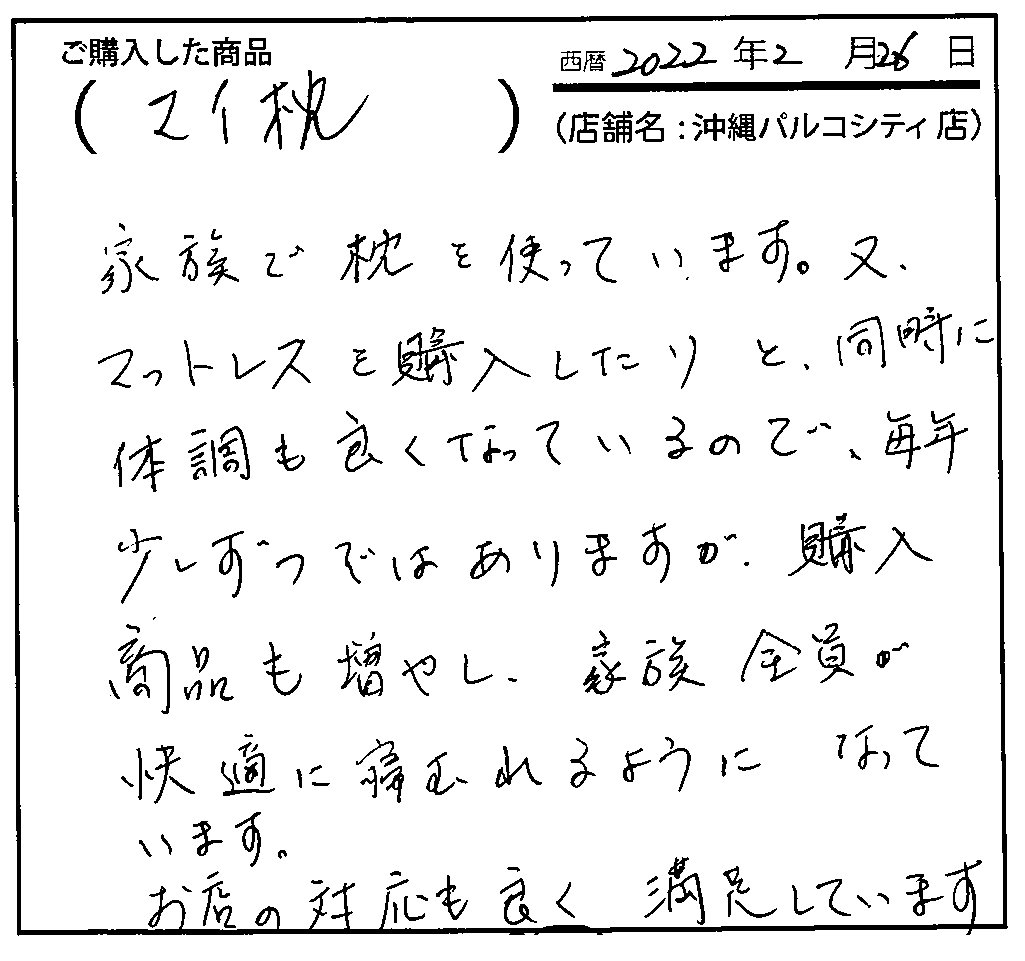 ご購入した商品
西暦 2022 年 2 月 26 日
( マイ枕 )
(店舗名:沖縄パルコシティ店)
家族で枕を使っています。又、
マットレスを購入したりと、同時に
体調も良くなっているので、毎年
少しずつではありますが、購入
商品も増やし、家族全員が
快適に寝むれるようになって
います。
お店の対応も良く満足しています